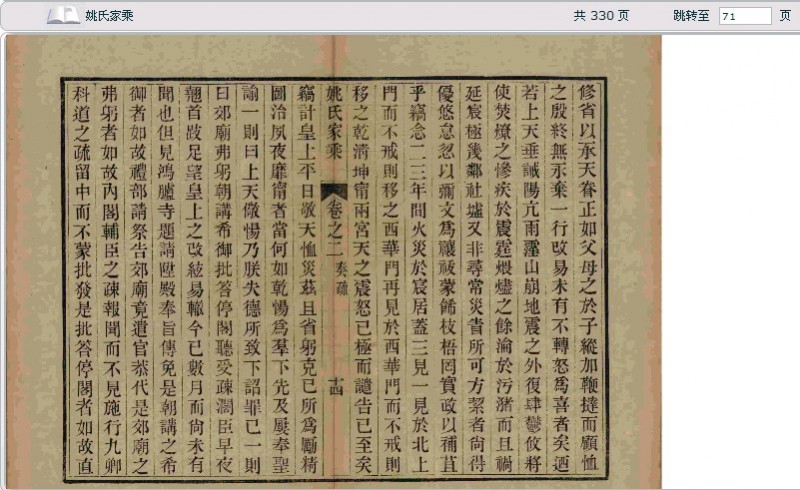 姚氏家乘
共 330 页
跳转至 71 页
修省以承天眷正如父母之於子縱加鞭撻而顧恤
之殷終無示棄一行改易未有不轉怒為喜者矣迺
若上天垂誡陽亢雨霪山崩地震之外復肆鬱攸將
使焚燎之慘疾於震霆煨燼之餘淪於污潴而且禍
延宸極幾鄰社墟又非尋常災眚所可方絜者尚得
優悠怠忽以彌文為禳祓蒙餙枝梧罔實政以補苴
乎竊念二三年間火災於宸居蓋三見一見於北上
門而不戒則移之西華門再見於西華門而不戒則
移之乾清坤甯兩宮天之震怒已極而譴告已至矣
姚氏家乘
卷之二
奏疏
十四
竊計皇上平日敬天恤災茲且省躬克己所為勵精
圖治夙夜靡甯者當何如乾惕為羣下先及屢奉聖
諭一則曰上天儆惕乃朕失德所致下詔罪己一則
曰郊廟弗躬朝講希御批答停閣聽受疎濶臣早夜
翹首跂足望皇上之改絃易轍今已數月而尚未有
聞也但見鴻臚寺題請陞殿奉旨傳免是朝講之希
御者如故禮部請祭告郊廟竟遣官恭代是郊廟之
弗躬者如故內閣輔臣之疎報聞而不見施行九卿
科道之疏留中而不蒙批發是批答停閣者如故直